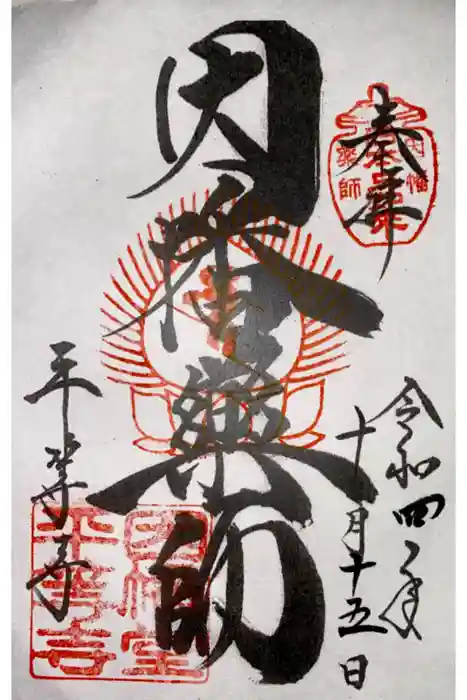 奉拝
因幡
薬師
令和四年
十一月十五日
因幡藥師
平等寺
因幡堂
平等寺